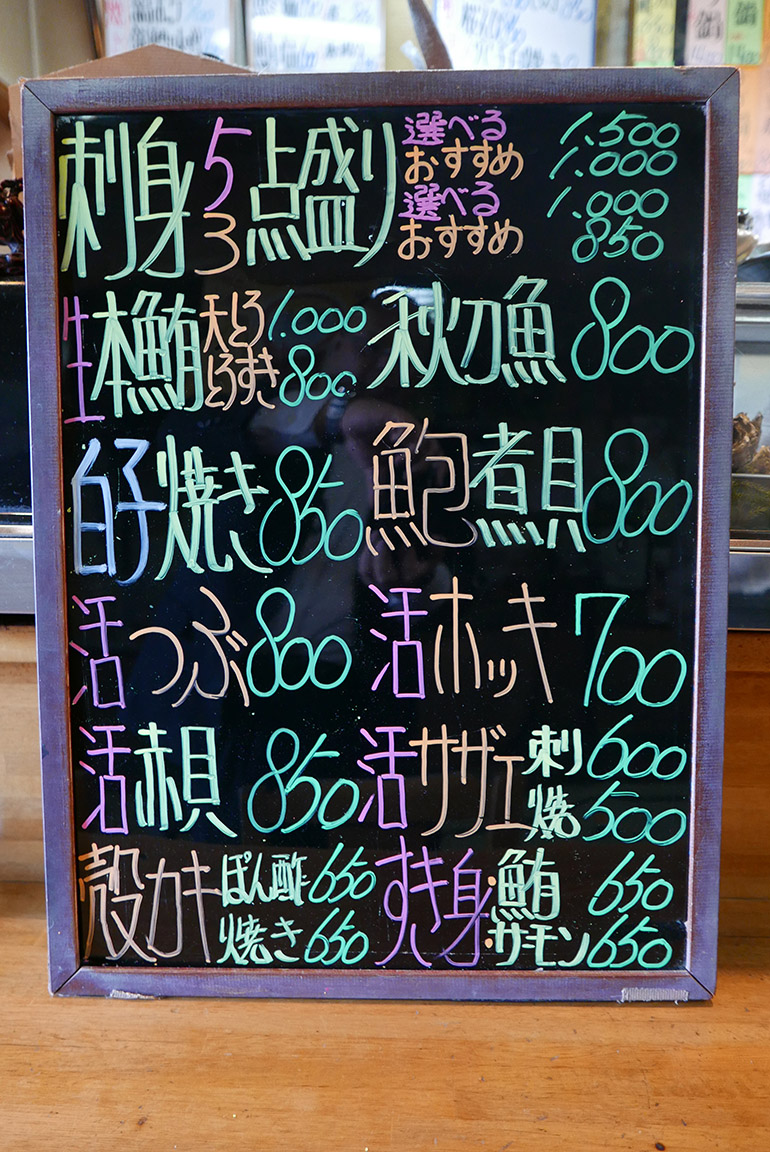 刺身 5点盛り 選べる 1.500
おすすめ 1.000
3 選べる 1.000
おすすめ 850
生本鮪 天とろ 1.000
とろすき 800
秋刀魚 800
白子焼き 850
鮑煮貝 800
活つぶ 800
活ホッキ 700
活赤貝 850
活サザエ 刺 600
焼 500
殻カキ ぽん酢 650
焼き 650
すき身 鮪 650
サーモン 650